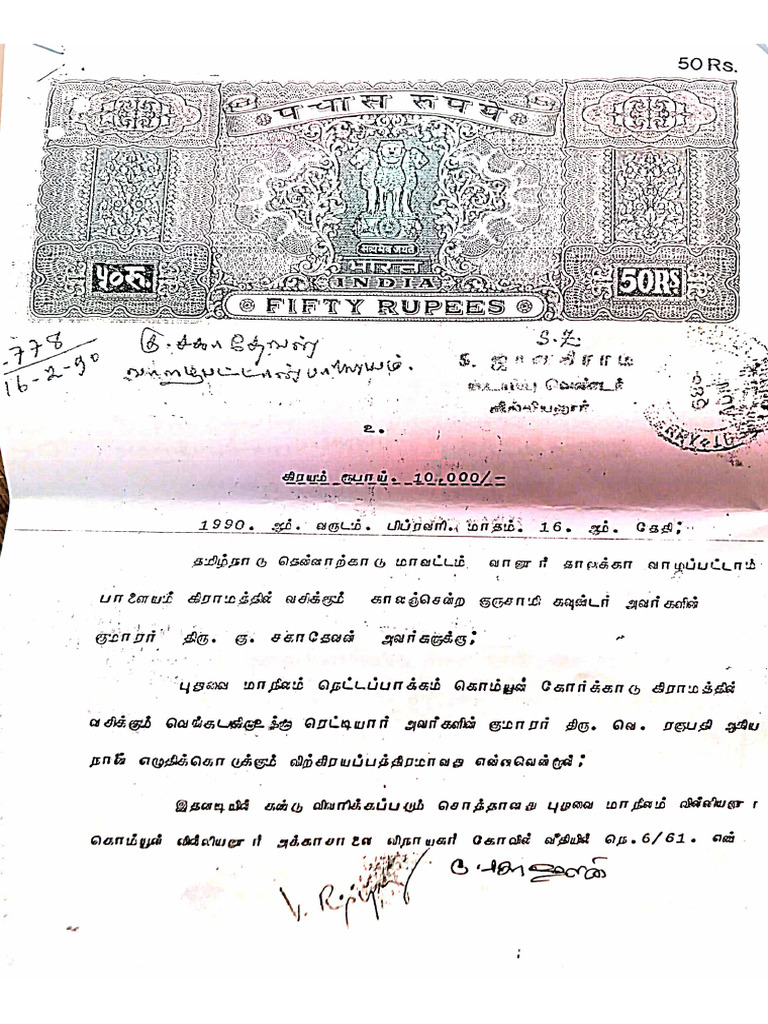 50 Rs.
पचास रुपये
सत्यमेव जयते
भारत
INDIA
५०रु.
50RS
FIFTY RUPEES
778
16-2-90
கு. சகாதேவன்
வாழப்பட்டாண்பாளையம்.
S.Z.
வில்லியனூர்
உ.
கிரயம் ரூபாய். 10,000/-
1990. ஆம். வருடம். பிப்ரவரி. மாதம். 16. ஆம். தேதி;
தமிழ்நாடு தென்னாற்காடு மாவட்டம் வானூர் தாலக்கா வாழப்பட்டாம்
பாளையம் கிராமத்தில் வசிக்கும் காலஞ்சென்ற குருசாமி கவுண்டர் அவர்களின்
குமாரர் திரு. கு. சகாதேவன் அவர்களுக்கு;
புதுவை மாநிலம் நெட்டப்பாக்கம் கொம்யூன் கோர்க்காடு கிராமத்தில்
வசிக்கும் ரெட்டியார் அவர்களின் குமாரர் திரு. வெ. ரகுபதி ஆகிய
நான் எழுதிக்கொடுக்கும் விற்கிரயப்பத்திரமாவது என்னவென்றால்;
இதனடியில் கண்டு விவரிக்கப்படும் சொத்தானது புதுவை மாநிலம் வில்லியனூர்
கொம்யூன் வில்லியனூர் அக்காசாலை விநாயகர் கோவில் வீதியில் நெ.6/61. என்